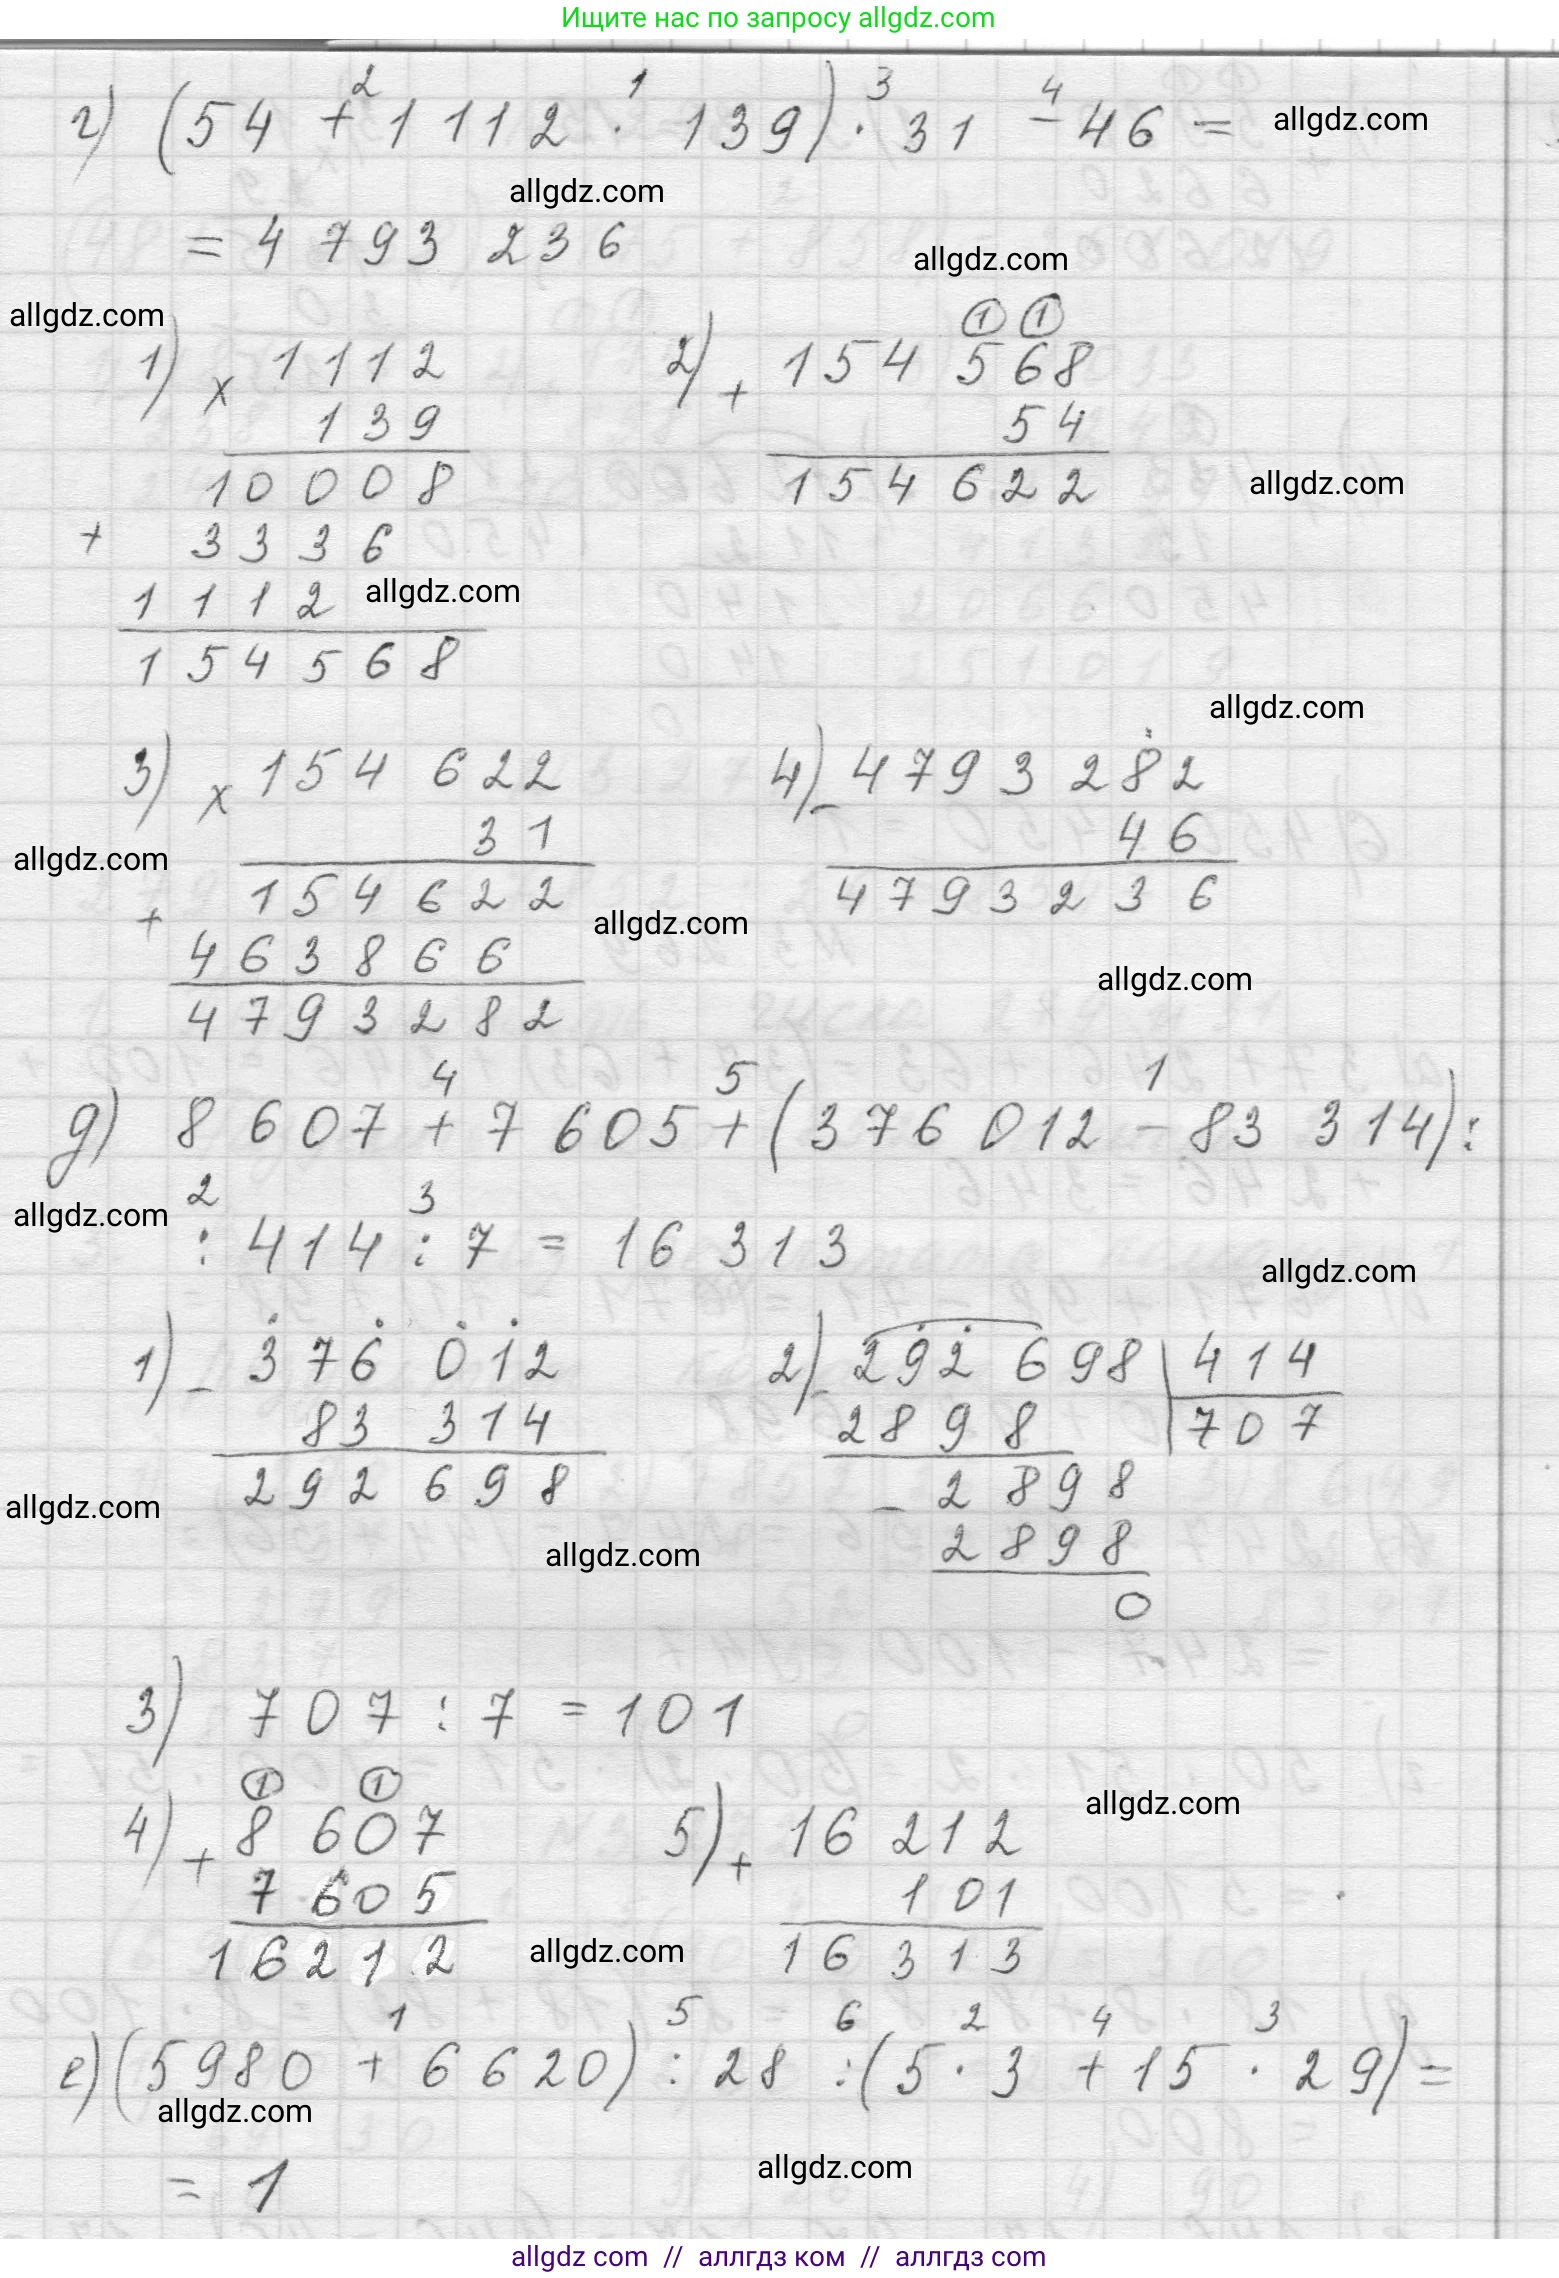 Ищите нас по запросу allgdz.com
2 1 3 4
г) (54 + 1112 · 139) · 31 - 46 = allgdz.com
allgdz.com
= 4 793 236
allgdz.com
allgdz.com
1 1
1) × 1112 2) + 154 568
139 54
10008 154 622 allgdz.com
+ 3336
1112 allgdz.com
154568
allgdz.com
3) × 154 622 4) - 4793 282
31 46
allgdz.com
154622 4793236
+ allgdz.com
463866
allgdz.com
4793282
4 5 1
д) 8 607 + 7 605 + (376 012 - 83 314) :
2 3
allgdz.com
: 414 : 7 = 16 313
allgdz.com
1) - 376 012 2) - 292 698 | 414
83 314 2898 707
292 698 - 2898
allgdz.com
allgdz.com 2898
0
3) 707 : 7 = 101
1 1
allgdz.com
4) + 8 607 5) + 16 212
7 605 101
16212 allgdz.com 16 313
1 5 6 2 4 3
е) (5980 + 6620) : 28 : (5 · 3 + 15 · 29) =
allgdz.com
allgdz.com
= 1
allgdz com // аллгдз ком // аллгдз com